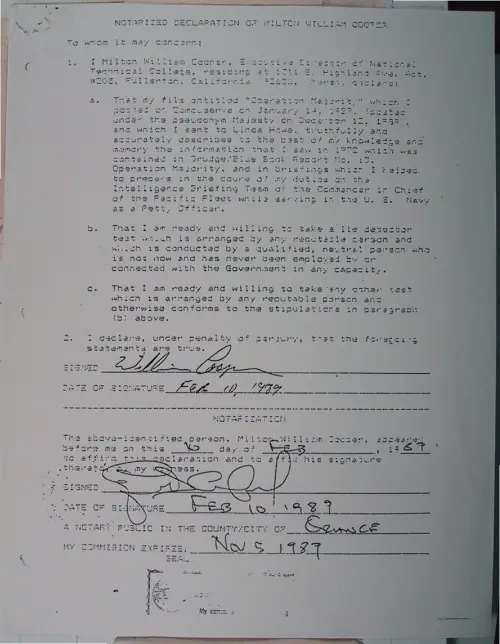 NOTARIZED DECLARATION OF MILTON WILLIAM COOPER
To whom it may concern:
1. I Milton William Cooper, Executive Director of National
Technical College, residing at 1311 S. Highland Ave. Apt.
Fullerton, California hereby declare:
a. That my file entitled "Operation Majority," which I
posted on Compuserve on January 14, (posted
under the pseudonym Majesty on December 12,
and which I sent to Linda Howe, truthfully and
accurately describes to the best of my knowledge and
memory the information that I saw in 1972 which was
contained in Grudge/Blue Book Report No. 13,
Operation Majority, and in briefings which I helped
to prepare in the course of my duties on the
Intelligence Briefing Team of the Commander in Chief
of the Pacific Fleet while serving in the U. S. Navy
as a Petty Officer.
b. That I am ready and willing to take a lie detector
test which is arranged by any reputable person and
which is conducted by a qualified, neutral person who
is not now and has never been employed by or
connected with the Government in any capacity.
c. That I am ready and willing to take any other test
which is arranged by any reputable person and
otherwise conforms to the stipulations in paragraph
(b) above.
2. I declare, under penalty of perjury, that the foregoing
statements are true.
SIGNED William Cooper
DATE OF SIGNATURE FEB 10, 1989
NOTARIZATION
The above-identified person, Milton William Cooper, appeared
before me on this 10 day of FEB, 1989
to affirm this declaration and to affix his signature
thereto my witness.
SIGNED
DATE OF SIGNATURE FEB 10 1989
A NOTARY PUBLIC IN THE COUNTY/CITY OF ORANGE
MY COMMISION EXPIRES, NOV 5 1989
SEAL
My comm.